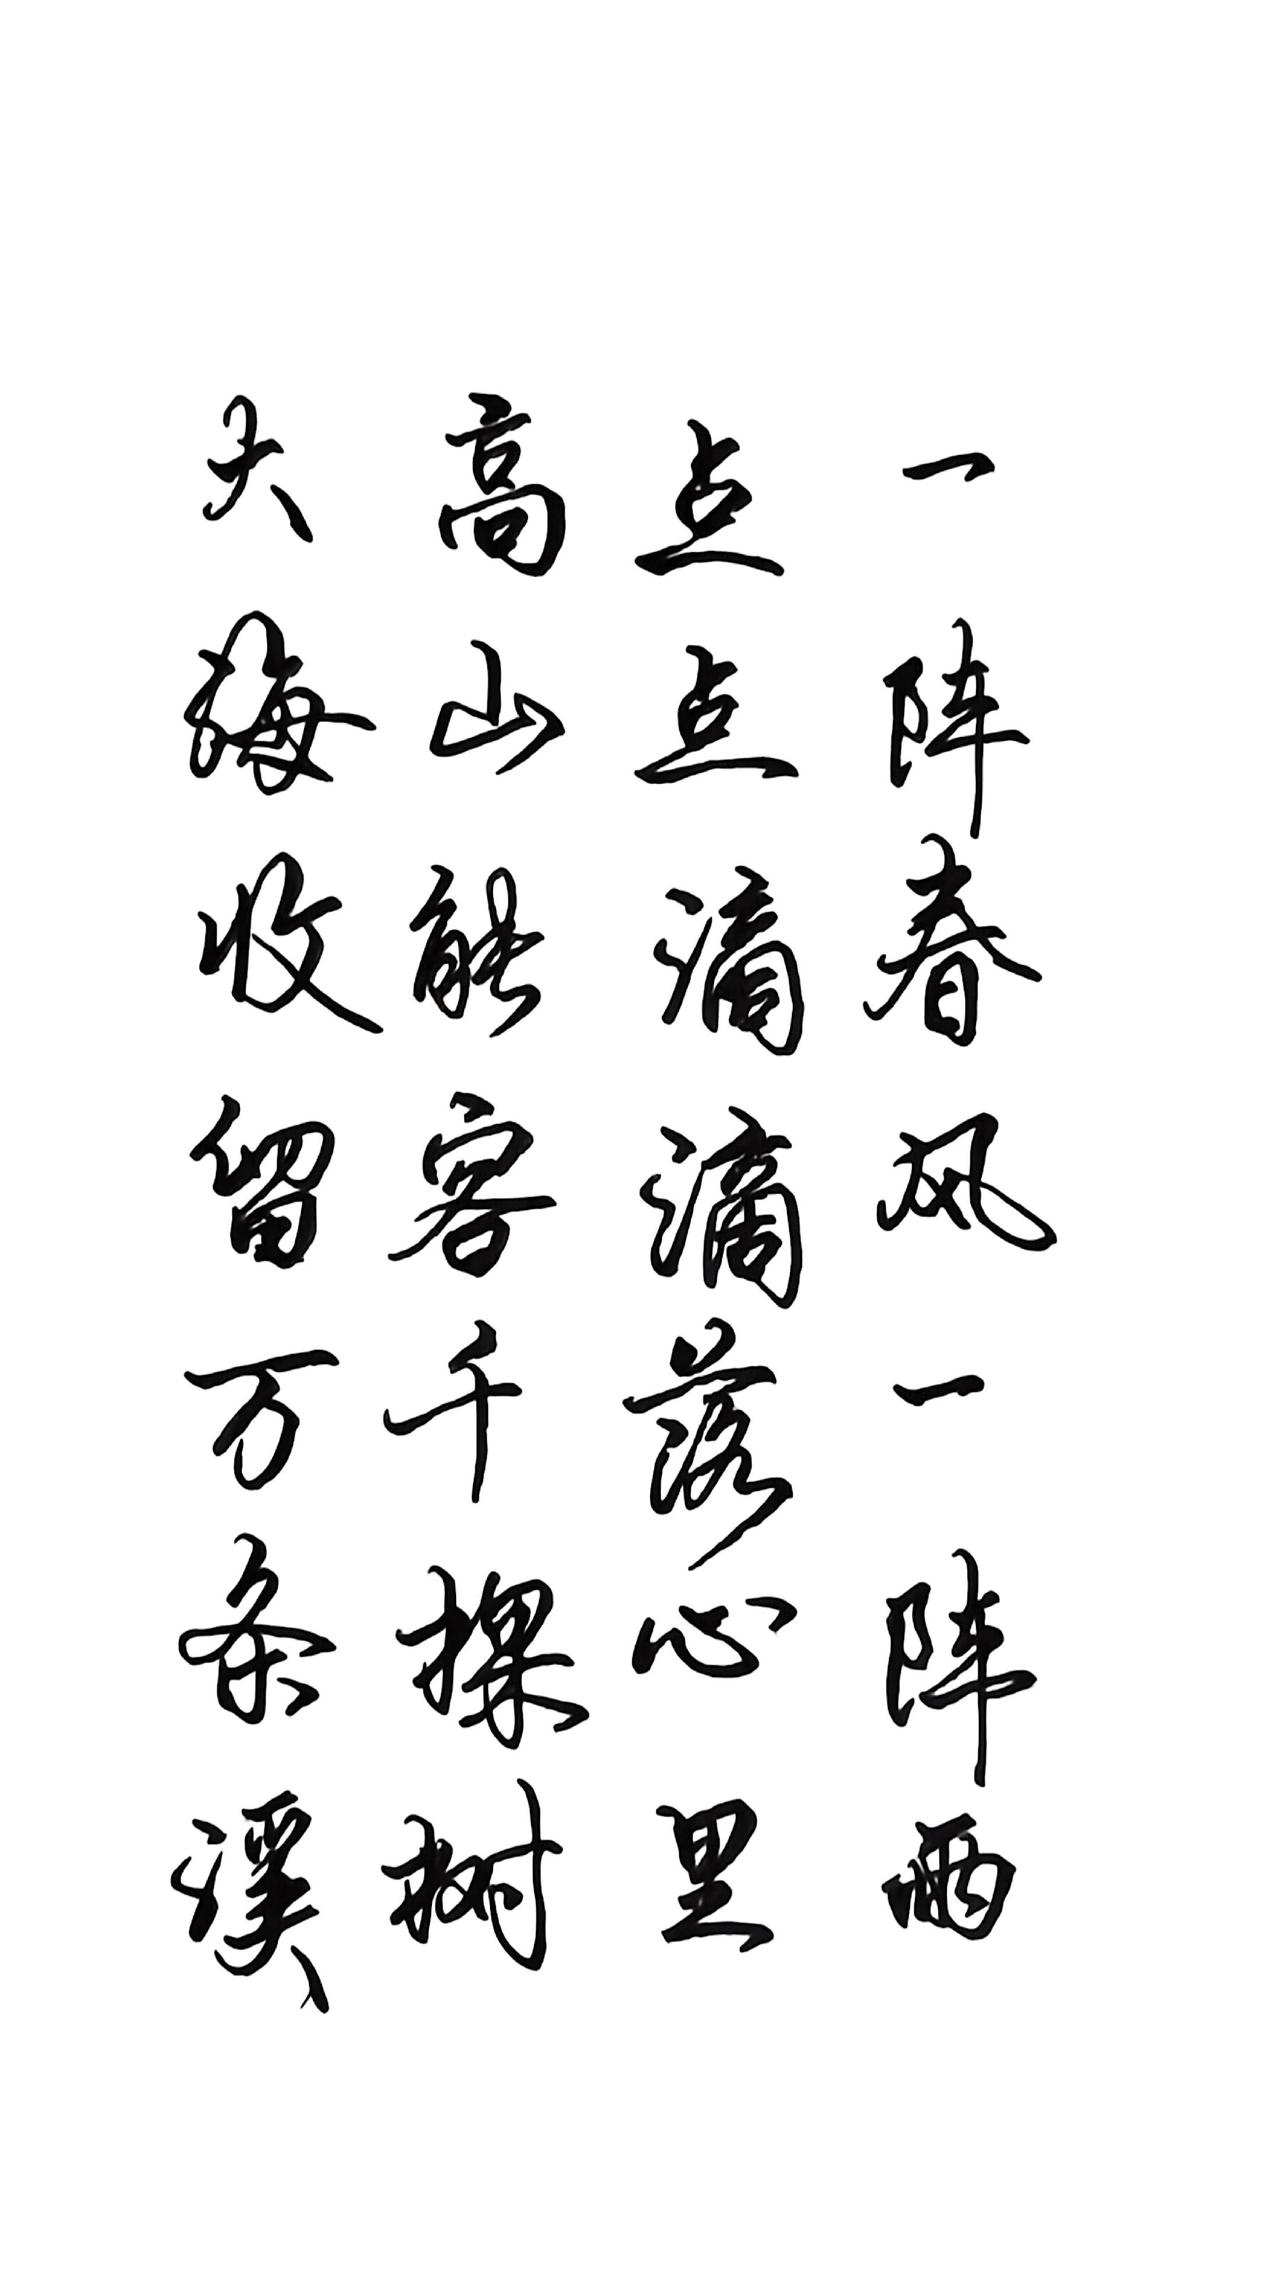 一阵春风一阵雨
点点滴滴落心里
高山能容千棵树
大海收留万条溪